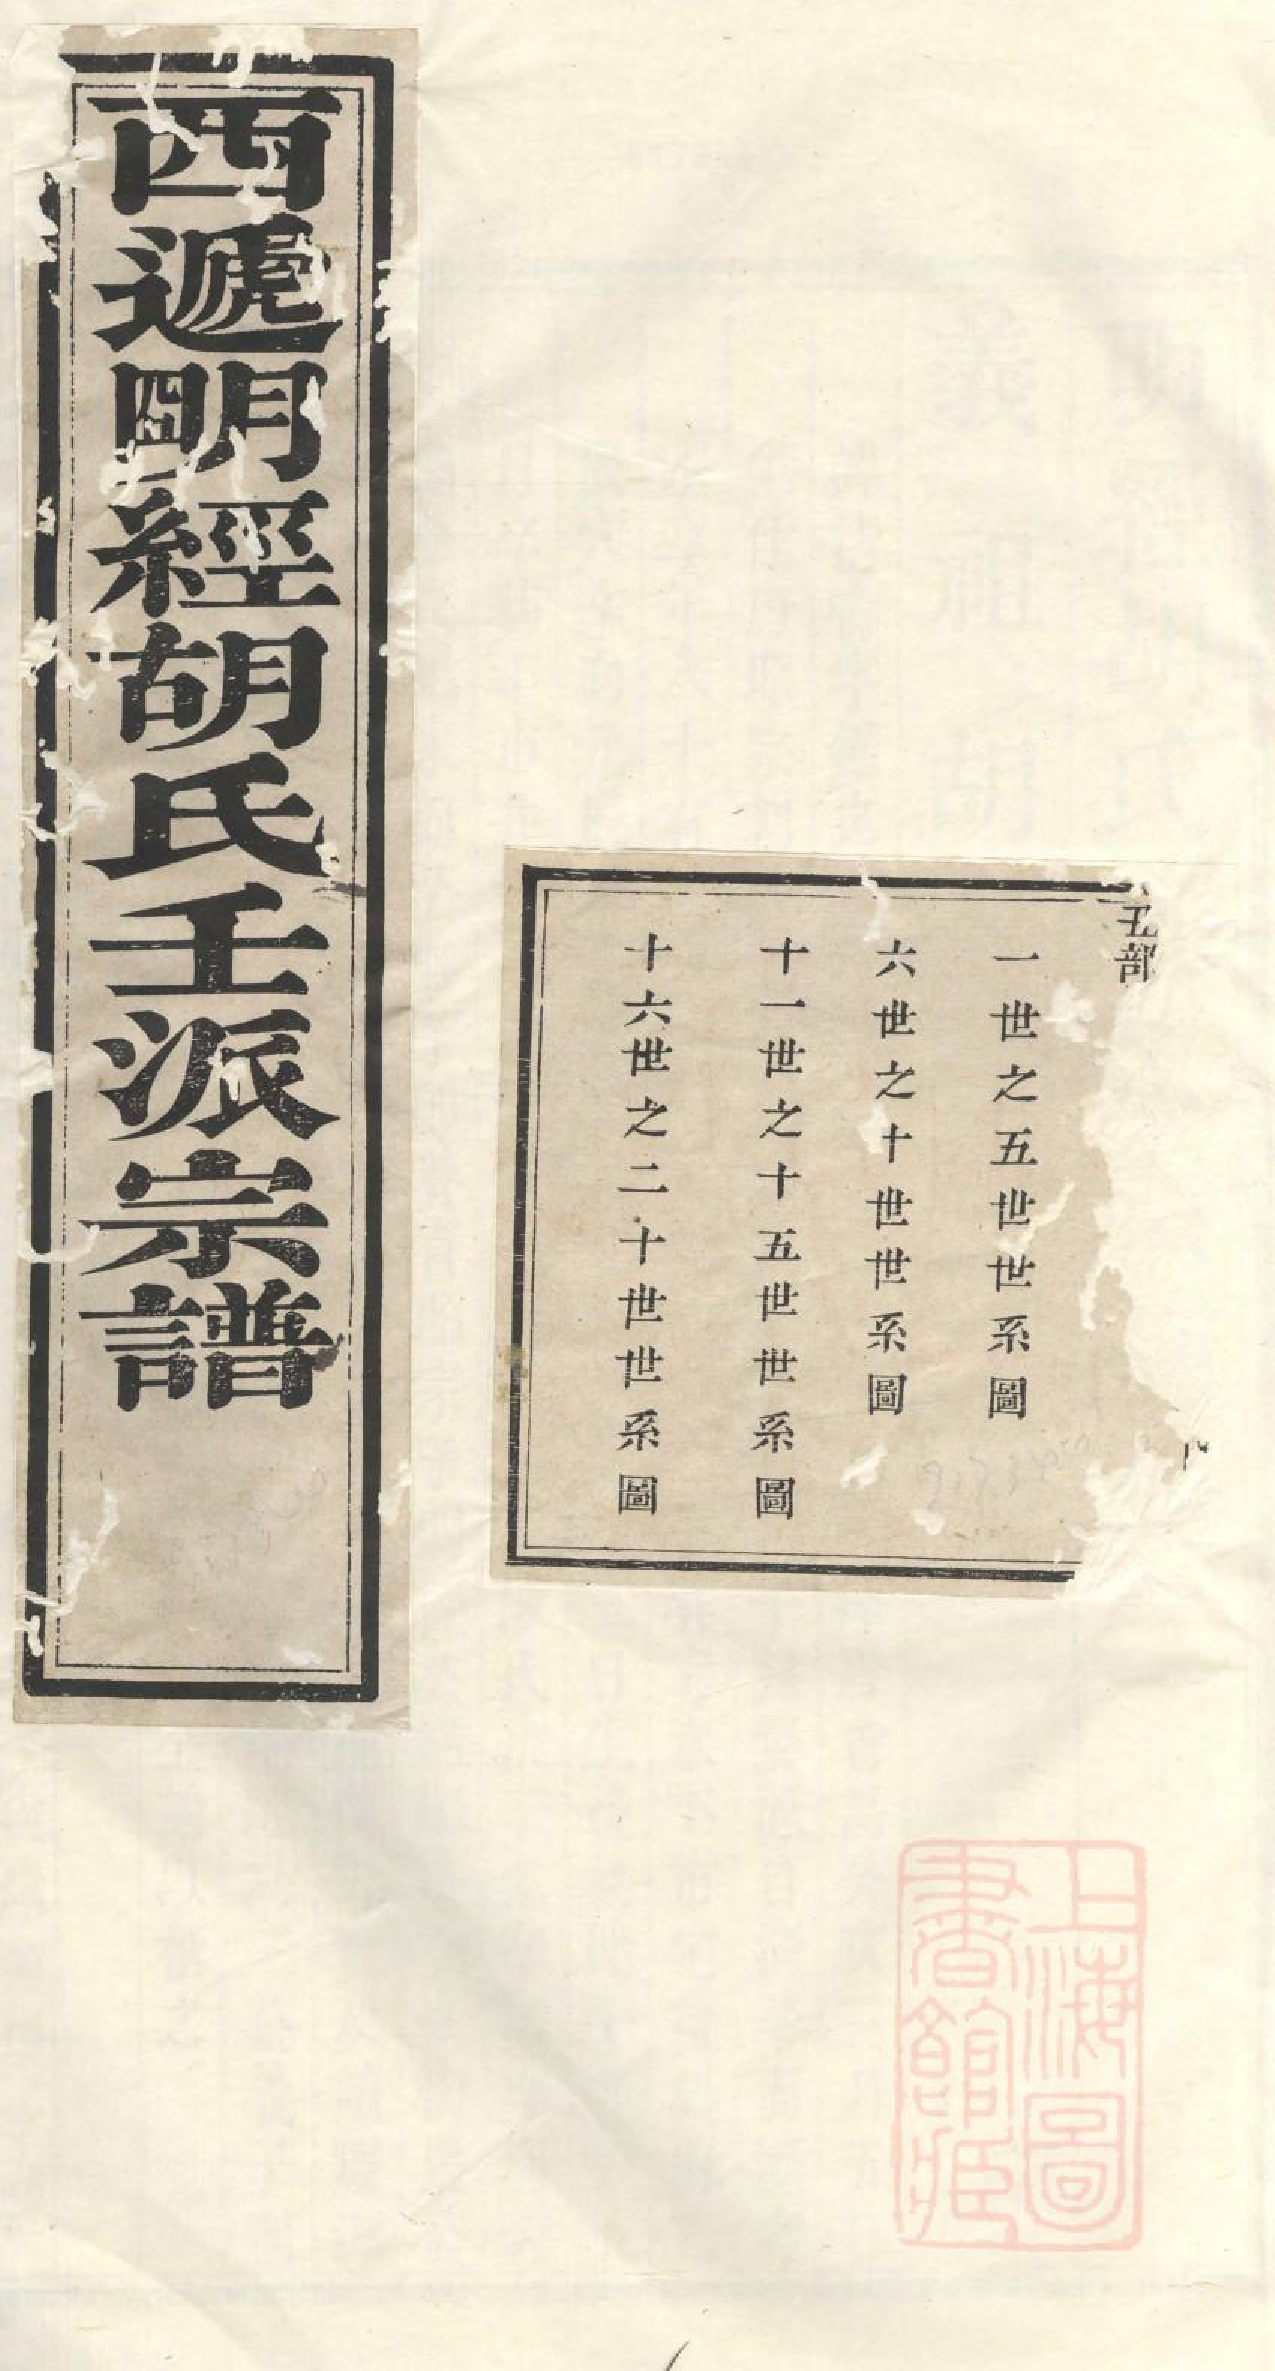 西遞明經胡氏壬派宗譜
丑部
一世之五世世系圖
六世之十世世系圖
十一世之十五世世系圖
十六世之二十世世系圖
上海圖
書館藏